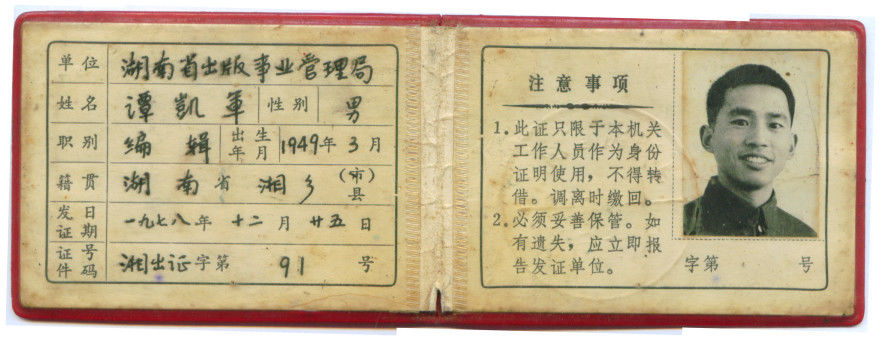 单位 湖南省出版事业管理局
姓名 谭凯军 性别 男
职别 编辑 出生年月 1949年3月
籍贯 湖南省湘乡(市)县
发证日期 一九七八年十二月廿五日
证件号码 湘出证字第91号
注意事项
1.此证只限于本机关
工作人员作为身份
证明使用，不得转
借。调离时缴回。
2.必须妥善保管。如
有遗失，应立即报
告发证单位。
字第 号